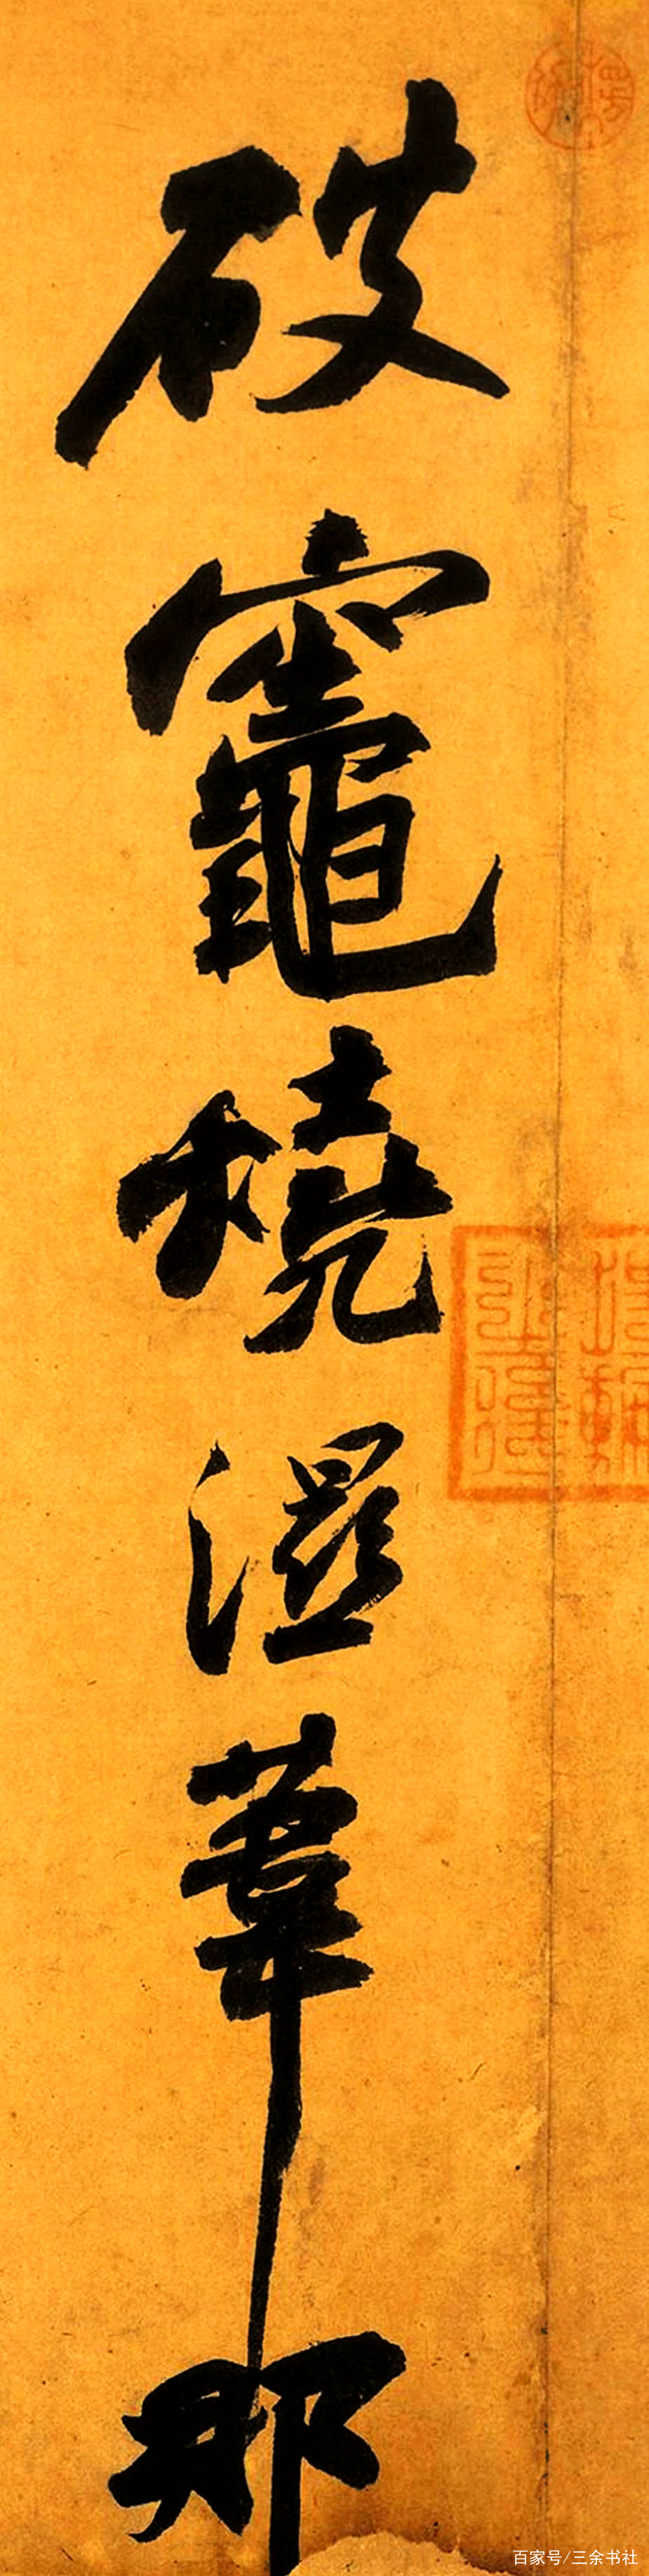 破竈燒濕葦那
百家号/三余书社